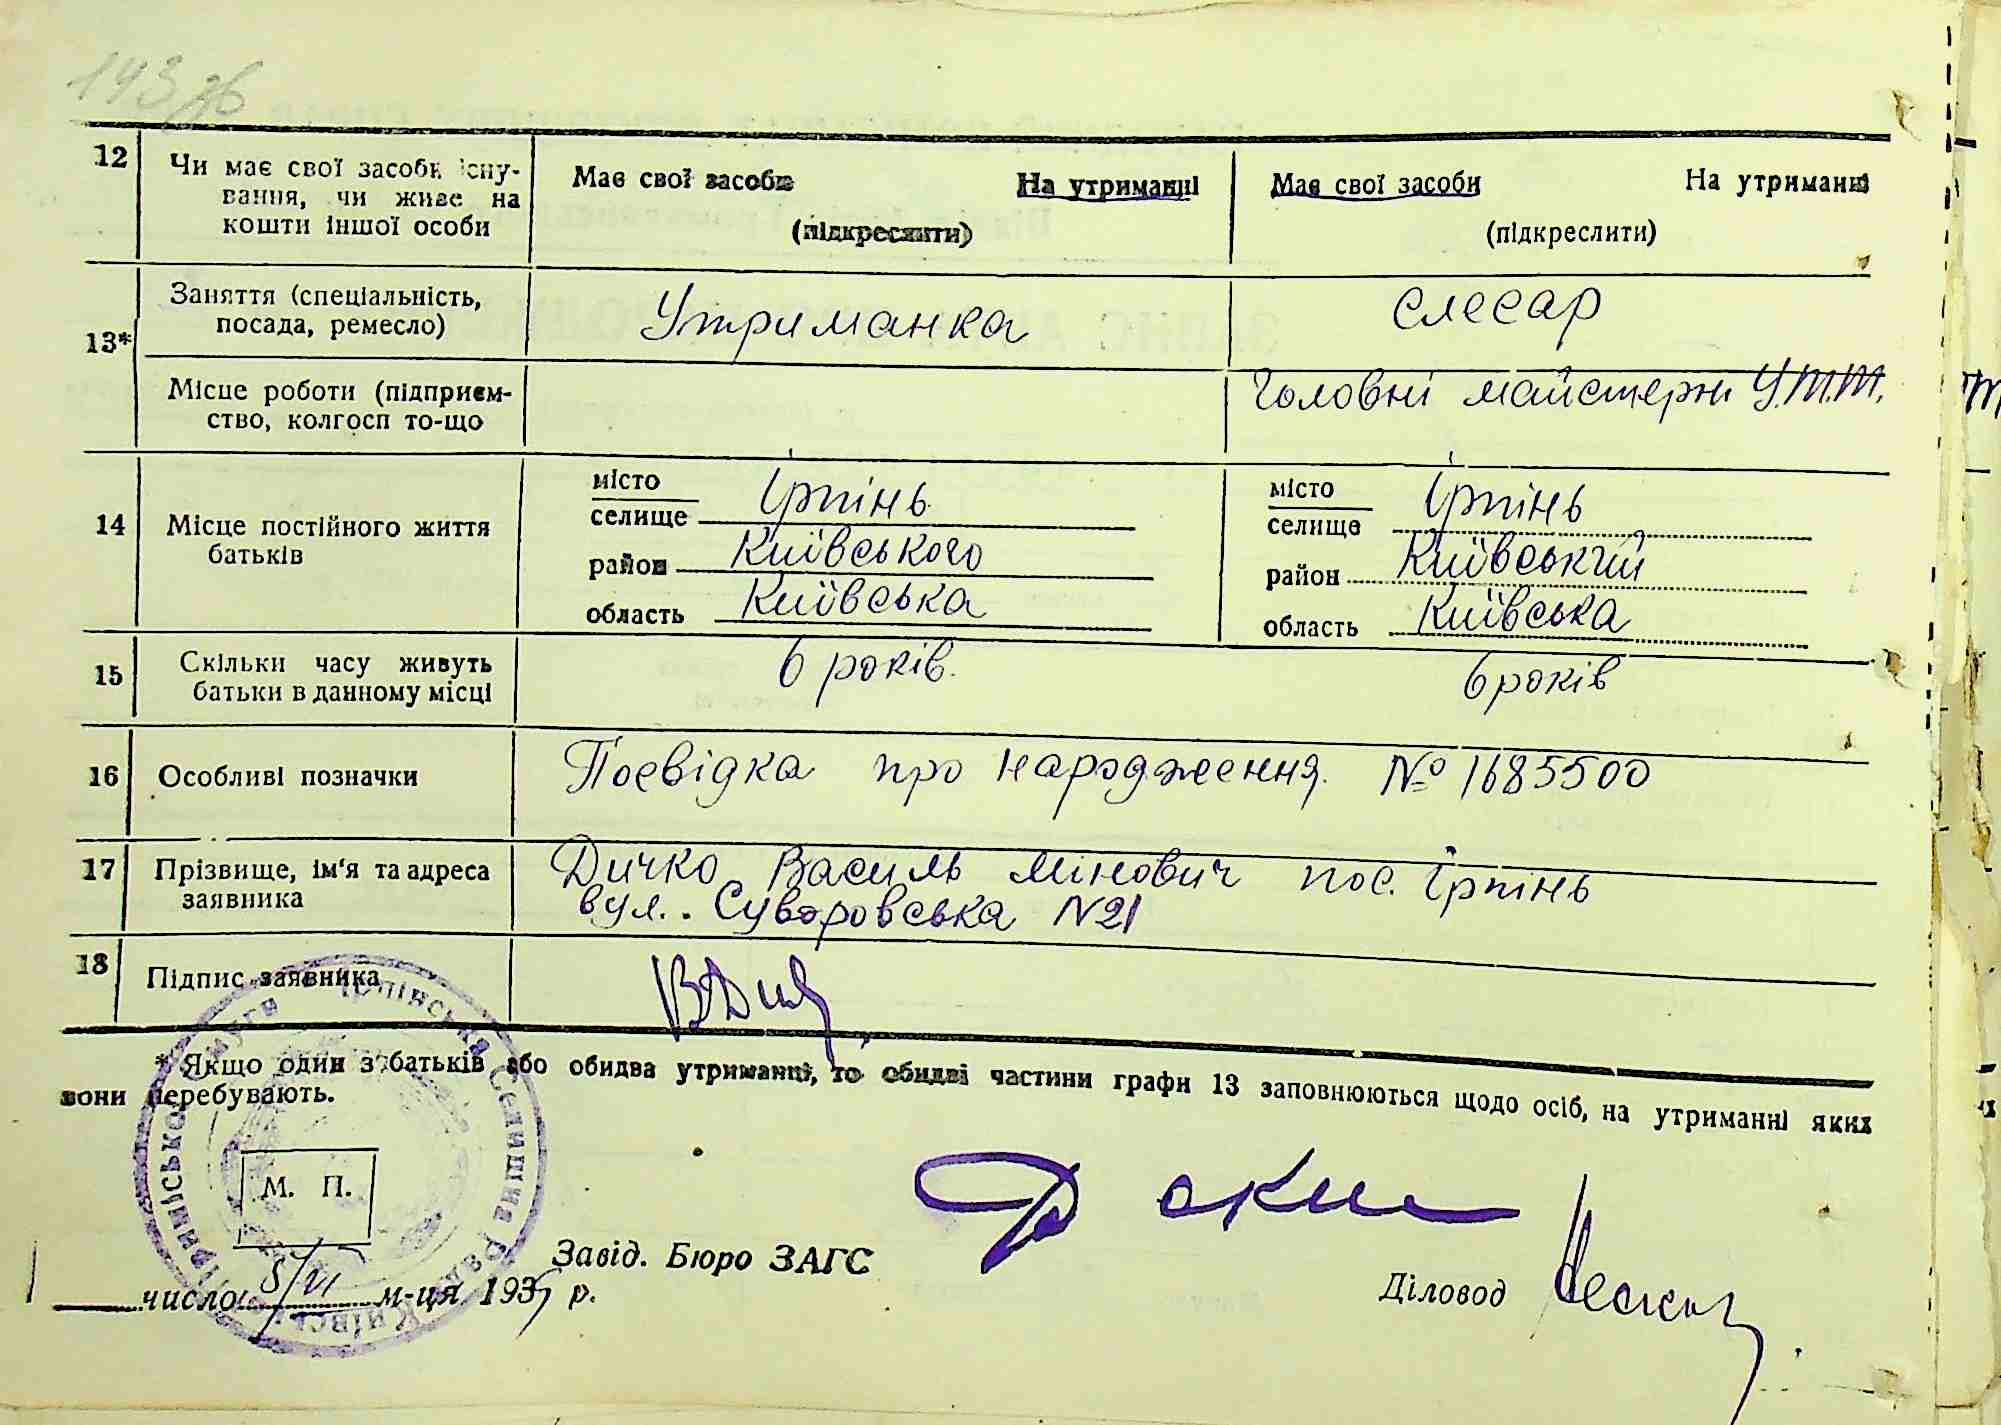 143 зв
12 Чи має свої засоби існу-
вання, чи живе на
кошти іншої особи
Має свої засоби На утриманні
(підкреслити)
Має свої засоби На утриманні
(підкреслити)
13*
Заняття (спеціальність,
посада, ремесло)
Утриманка
слесар
Місце роботи (підприєм-
ство, колгосп то-що
Головні майстерні У.Т.Т.
14 Місце постійного життя
батьків
місто
селище Ірпінь
район Київського
область Київська
місто
селище Ірпінь
район Київський
область Київська
15 Скільки часу живуть
батьки в данному місці
6 років.
6 років
16 Особливі позначки
Посвідка про народження. № 1685500
17 Прізвище, ім'я та адреса
заявника
Дичко Василь Мінович пос. Ірпінь
вул. Суворовська N 21
18 Підпис заявника
* Якщо один з батьків або обидва утриманці, то обидві частини графи 13 заповнюються щодо осіб, на утриманні яких
вони перебувають.
Ірпінська Селищна Рада Київської Приміської смуги
М. П.
Завід. Бюро ЗАГС
Діловод
число 8/VI м-ця 193 р.